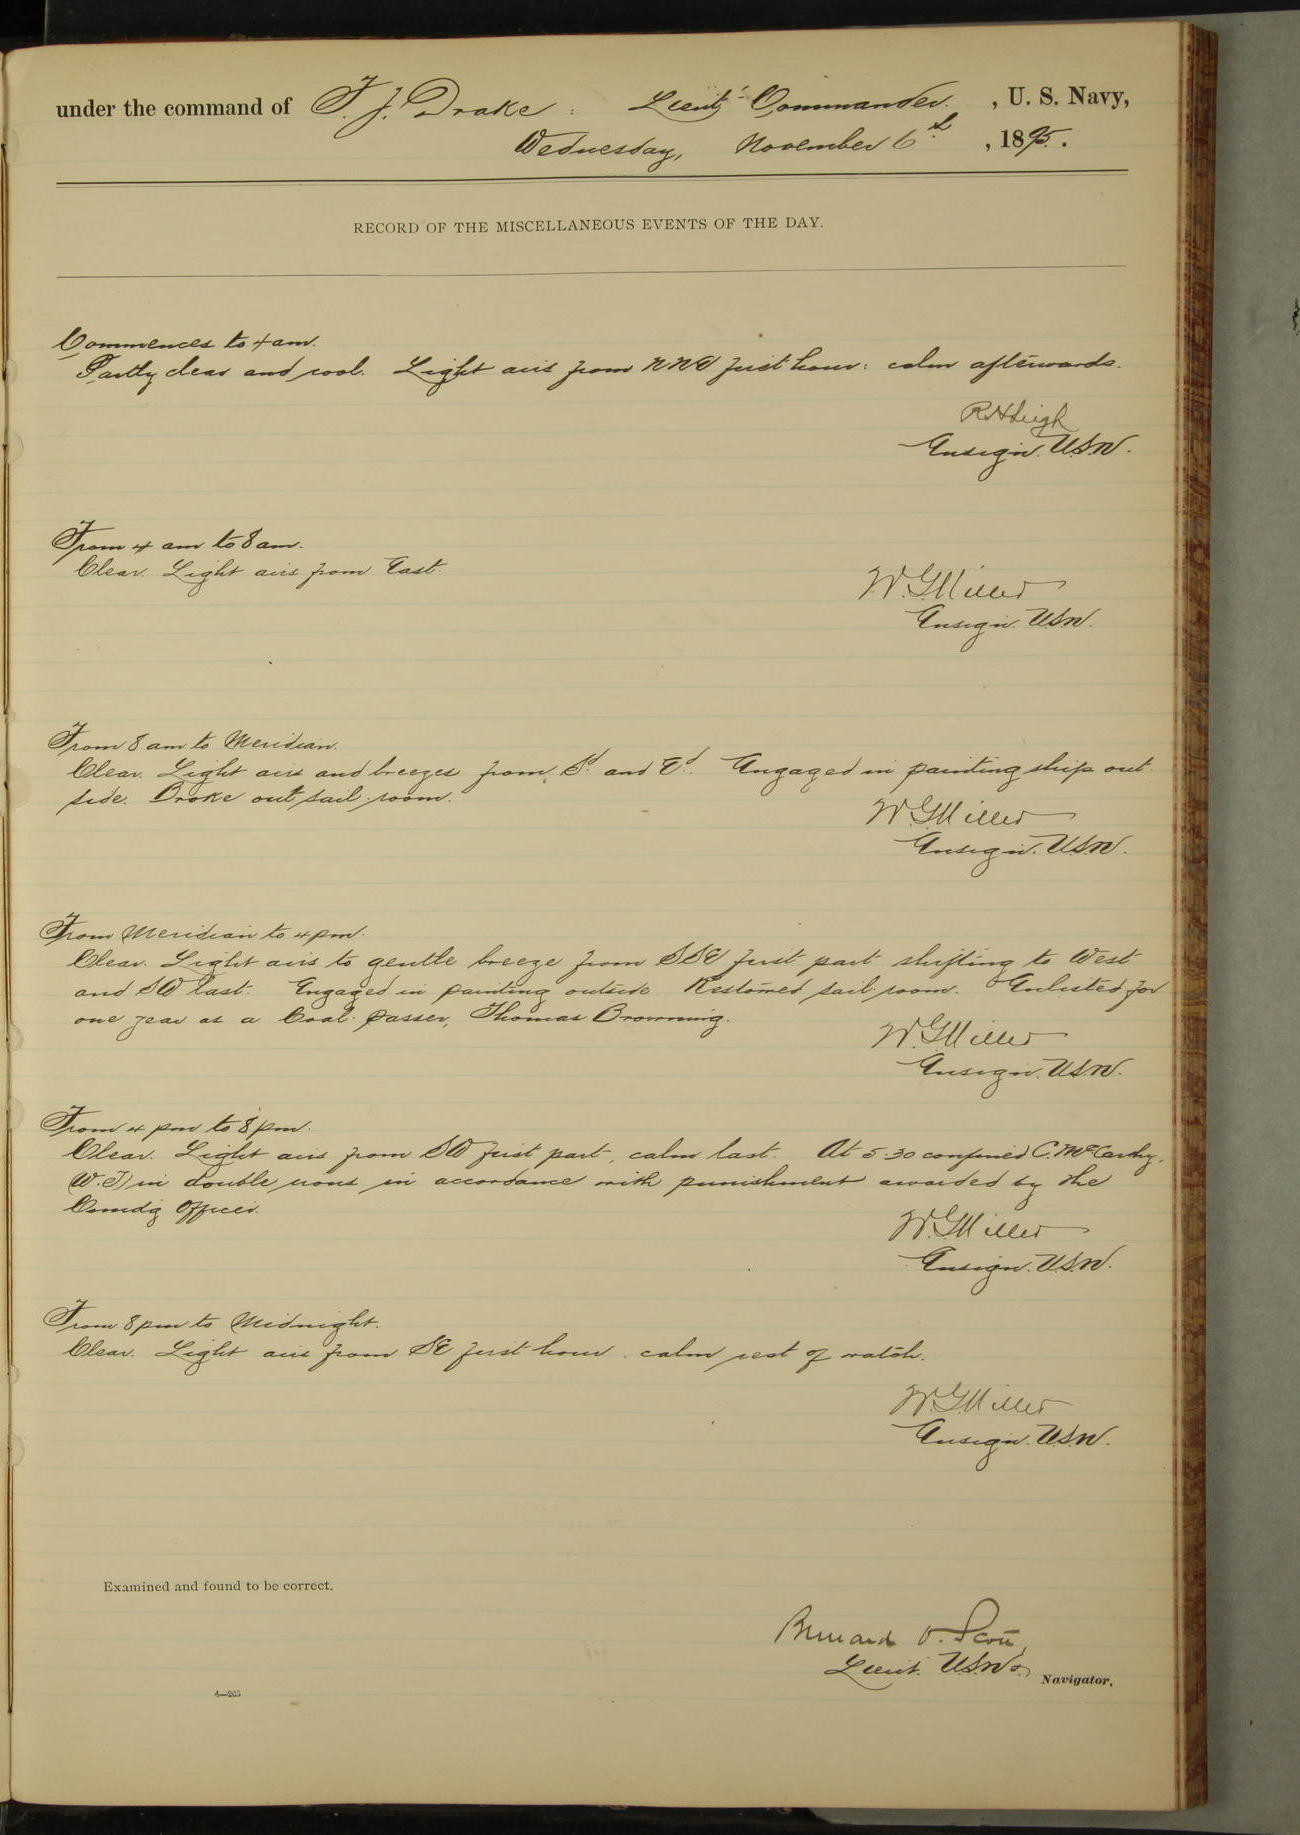 under the command of F. J. Drake : Lieut. Commander. , U. S. Navy,
Wednesday, November 6th , 1895.
RECORD OF THE MISCELLANEOUS EVENTS OF THE DAY.
Commences to 4 am.
Partly clear and cool. Light airs from NNE first hour: calm afterwards.
R H Leigh
Ensign. U.S.N.
From 4 am to 8 am.
Clear. Light airs from East.
W. G. Miller
Ensign. U.S.N.
From 8 am to Meridian.
Clear. Light airs and breezes from Sd. and Ed. Engaged in painting ship out
side. Broke out sail-room.
W. G. Miller
Ensign. U.S.N.
From Meridian to 4 pm.
Clear. Light airs to gentle breeze from SSE first part shifting to West
and SW last. Engaged in painting outside. Restowed sail-room. Enlisted for
one year as a Coal-passer, Thomas Browning.
W. G. Miller
Ensign. U.S.N.
From 4 pm to 8 pm.
Clear. Light airs from SW first part, calm last. At 5.30 confined C. McCarthy,
(W.T.) in double irons in accordance with punishment awarded by the
Comdg Officer.
W. G. Miller
Ensign. U.S.N.
From 8 pm to Midnight.
Clear. Light airs from SE first hour. calm rest of watch.
W. G. Miller
Ensign. U.S.N.
Examined and found to be correct.
Bernard O. Scott,
Lieut. U.S.N. Navigator.
4—205